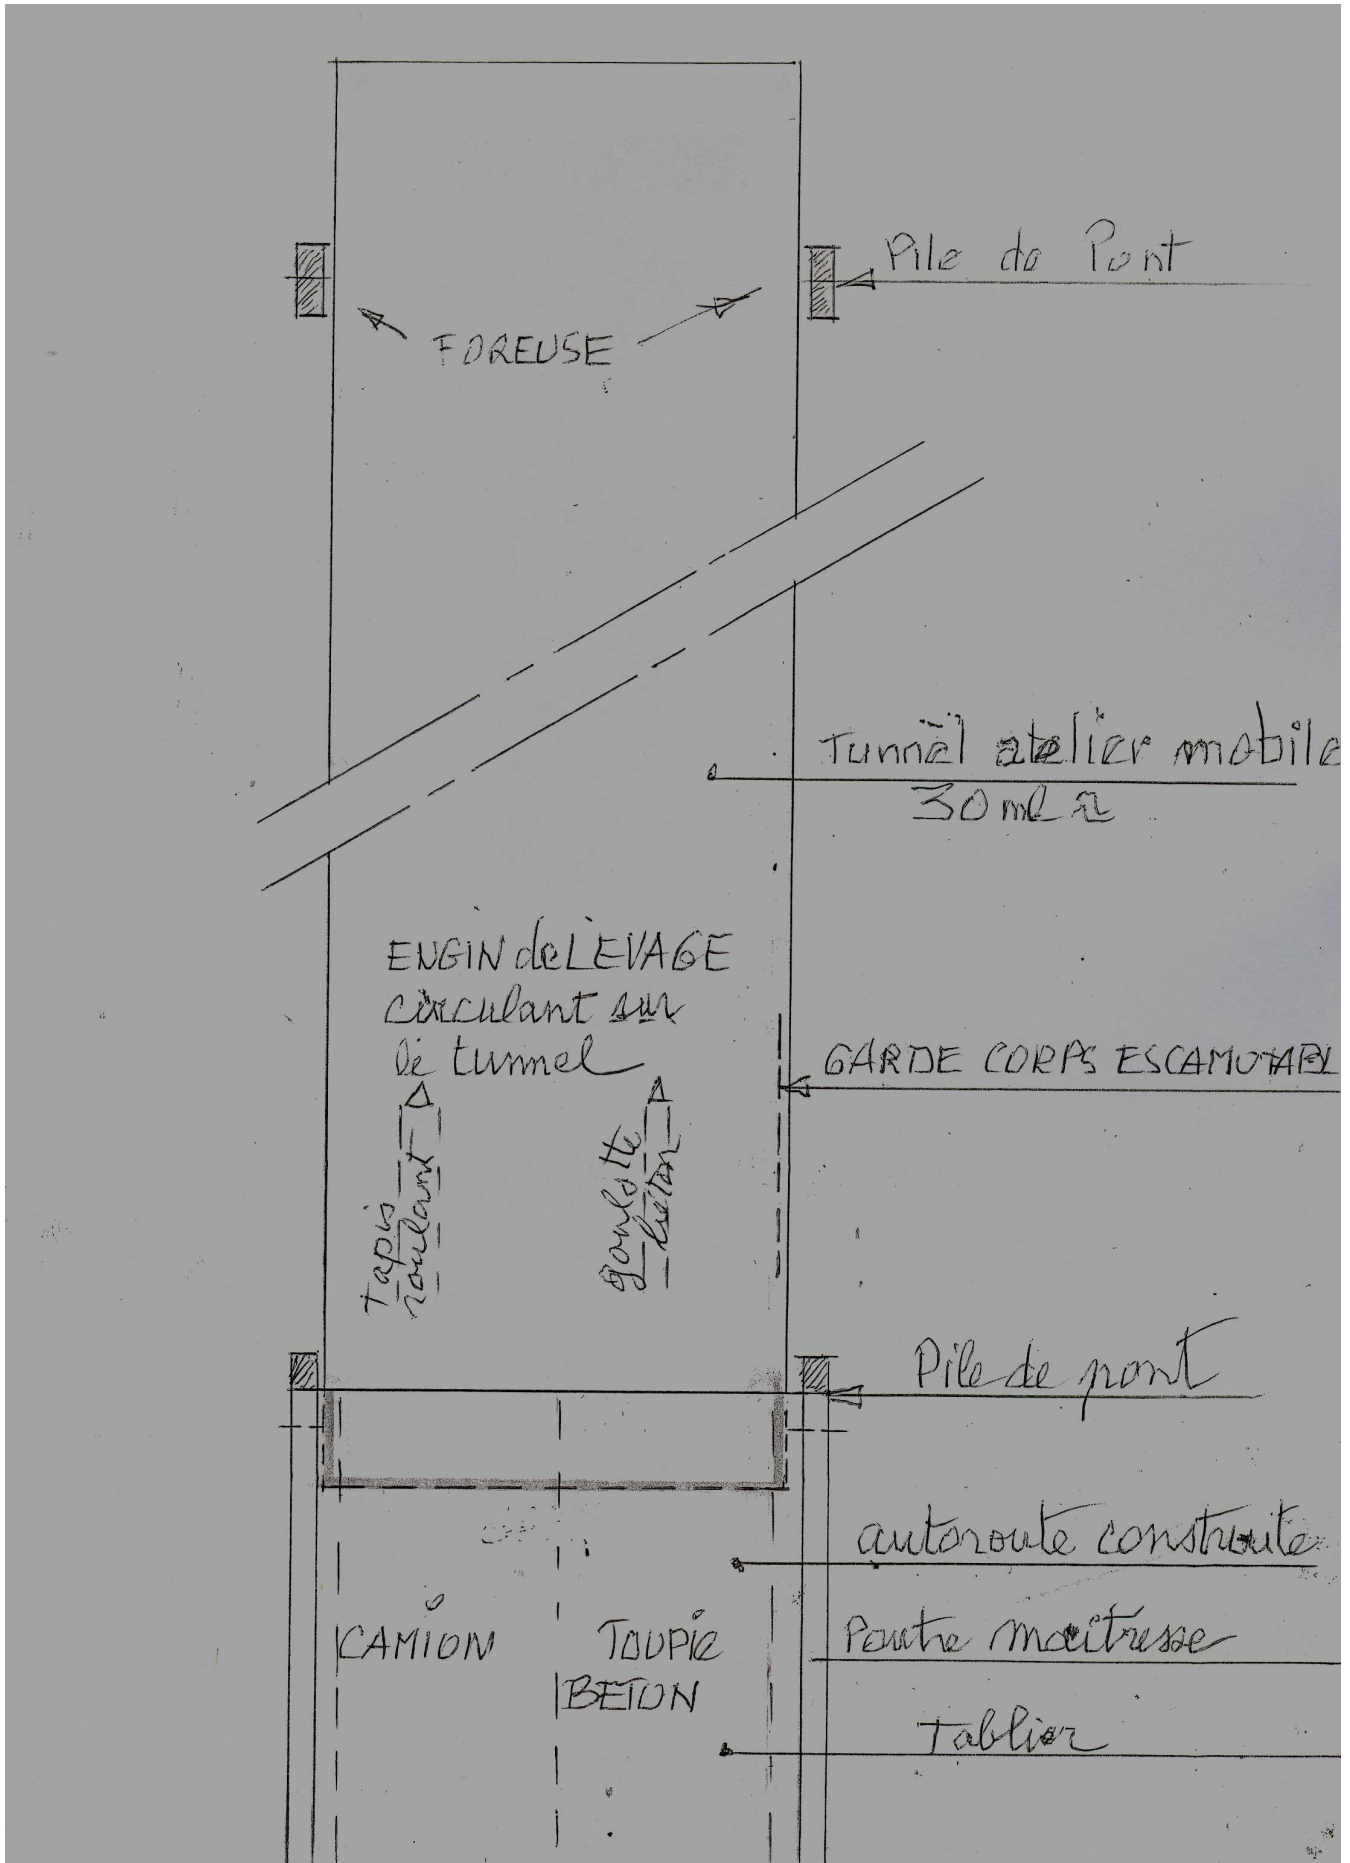 Pile de Pont
FOREUSE
Tunnel atelier mobile
30 ml
ENGIN de LEVAGE
circulant sur
le tunnel
GARDE CORPS ESCAMOTABL
tapis
roulant
goulotte
béton
Pile de pont
autoroute construite
CAMION
TOUPIE
BETON
Poutre maîtresse
Tablier